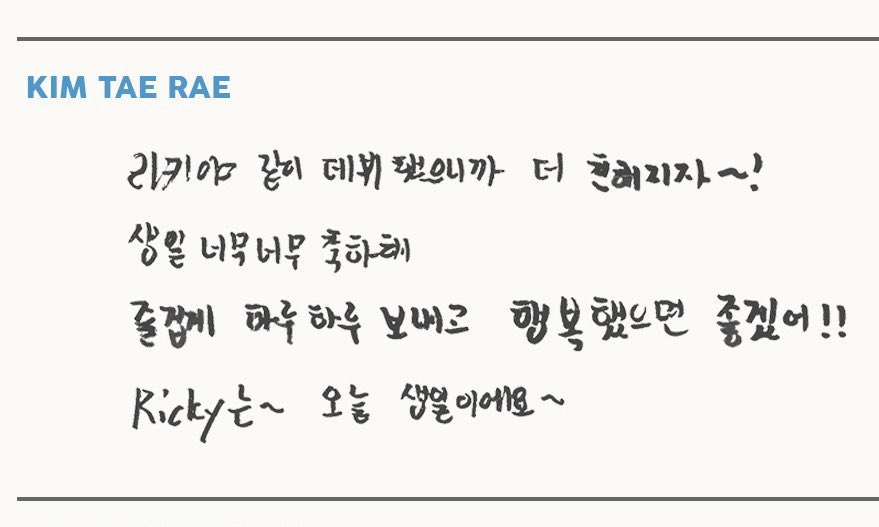 KIM TAE RAE
리키야 같이 데뷔 했으니까 더 친해지자~!
생일 너무너무 축하해
즐겁게 하루하루 보내고 행복했으면 좋겠어!!
Ricky는~ 오늘 생일이에요~